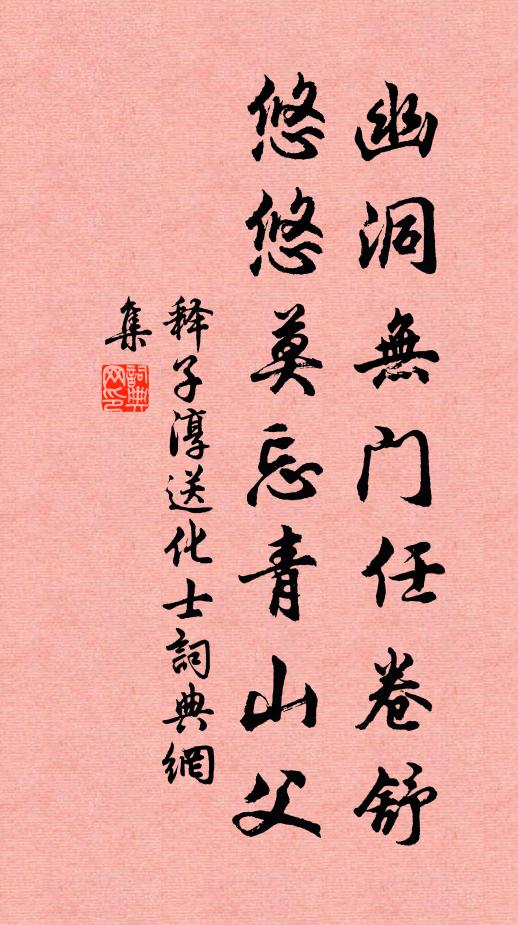 幽洞無门任卷舒
悠悠莫忘青山父
释子淳送化士詞典網
集
詞典
网印